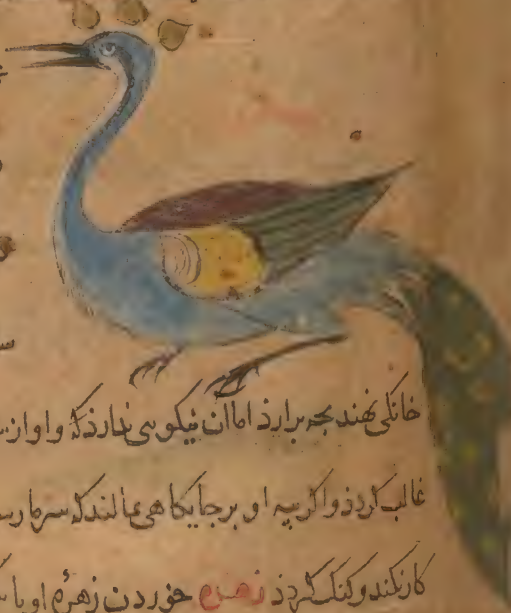 خانکی نهند بجه برارد اما ان نیکویی ندارد که و اواز
غالب کردد و اکر پیه او بر جایکاهی مالند که سرما رس
کار نکند و کنک کردد زهره خوردن زهرهٔ او با